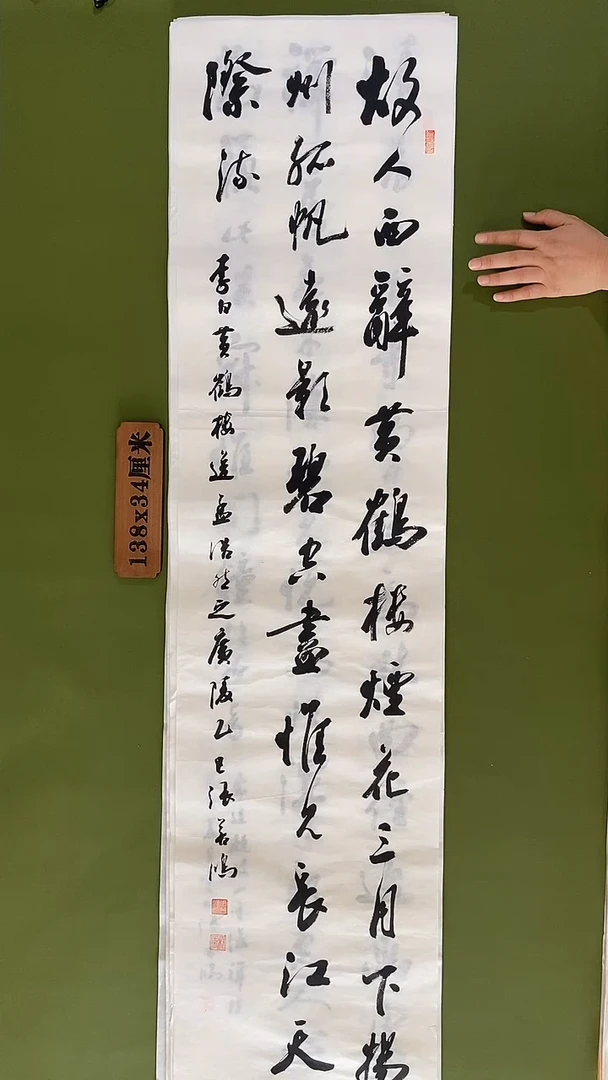 故人西辭黄鶴楼煙花三月下揚
州孤帆遠影碧空盡惟見長江天
際流
李白黄鶴楼送孟浩然之廣陵乙巳張善鴻
138x34厘米